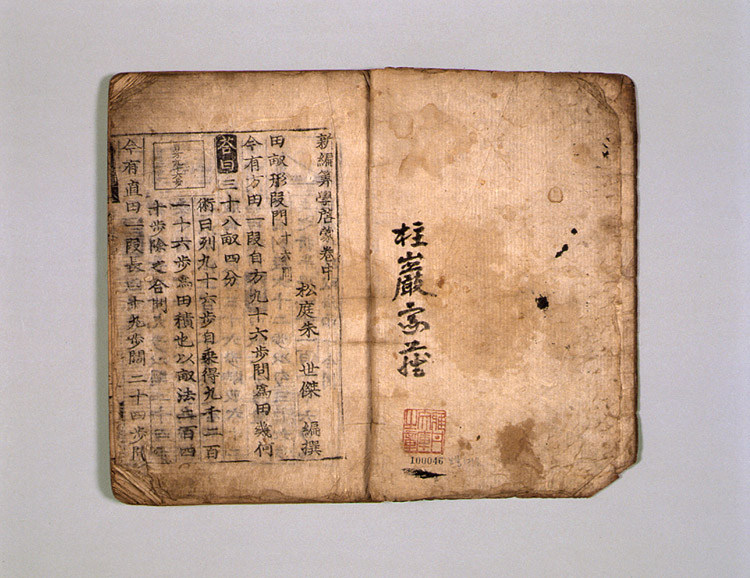 桂巖家藏
100046
新編筭學啓蒙卷中
松庭朱 世傑 編撰
田畝形段門 十六問
今有方田一段自方九十六步問爲田幾何
答曰 三十八畝四分
術曰列九十六步自乘得九千二百
一十六步爲田積也以畝法二百四
十步除之合問
今有直田一段長四十九步闊二十四步問